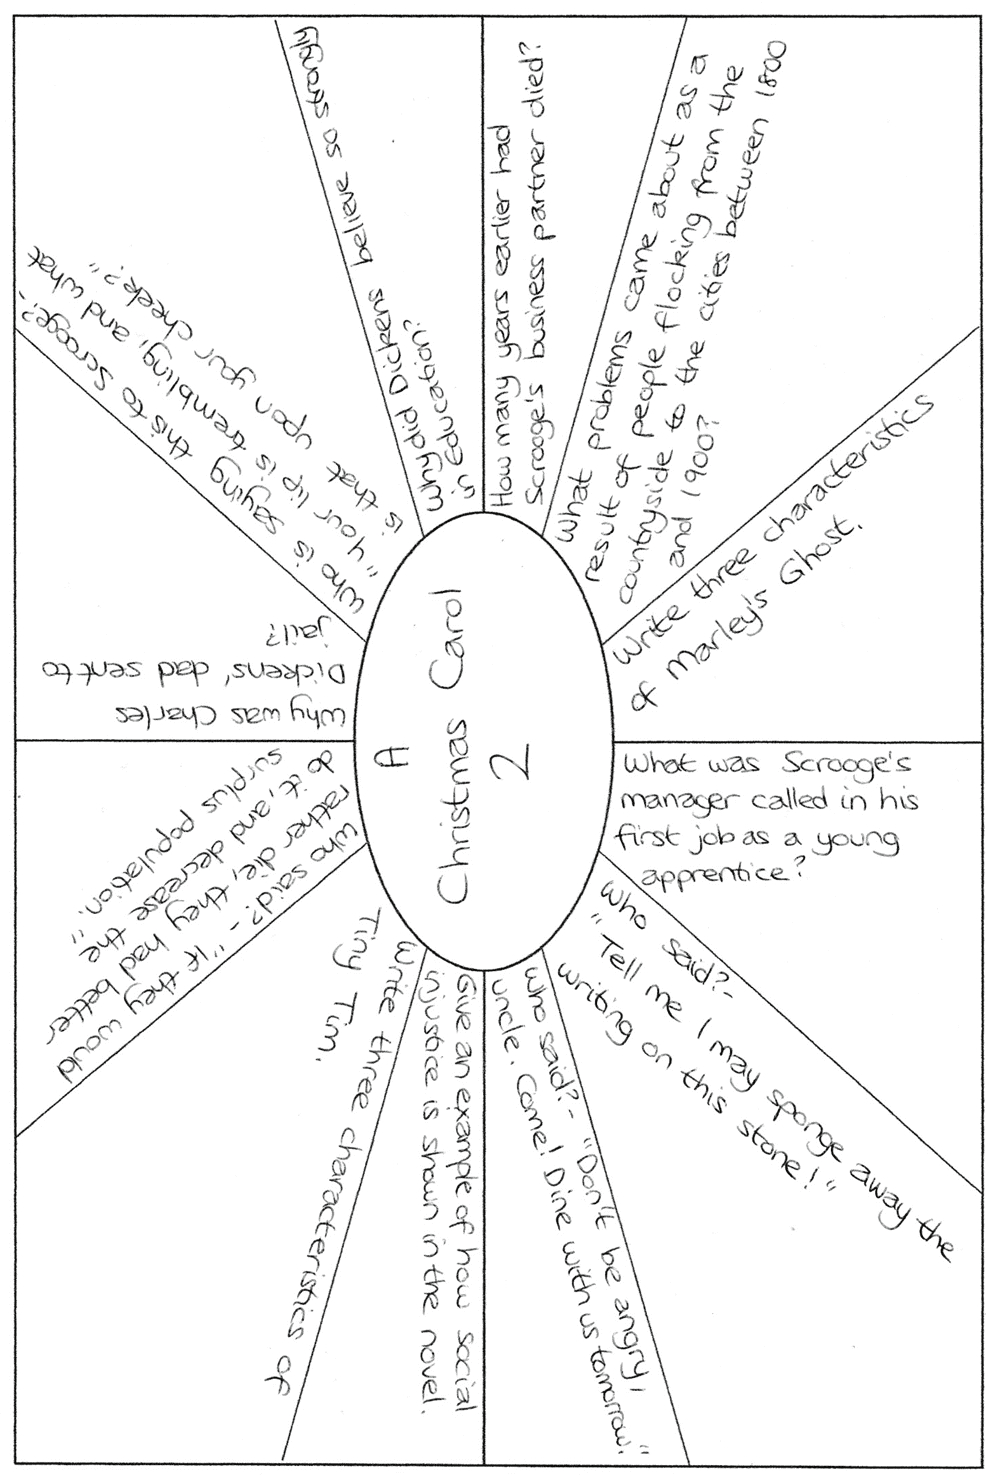 A
Christmas Carol
2
How many years earlier had
Scrooge's business partner died?
What problems came about as a
result of people flocking from the
countryside to the cities between 1800
and 1900?
Write three characteristics
of Marley's Ghost.
What was Scrooge's
manager called in his
first job as a young
apprentice?
Who said?-
"Tell me I may sponge away the
writing on this stone!"
Who said?- "Don't be angry,
uncle. Come! Dine with us tomorrow."
Give an example of how social
injustice is shown in the novel.
Write three characteristics of
Tiny Tim.
Who said?- "If they would
rather die, they had better
do it, and decrease the
surplus population."
Why was Charles
Dickens' dad sent to
jail?
Who is saying this to Scrooge?-
"Your lip is trembling, and what
is that upon your cheek?"
Why did Dickens believe so strongly
in Education?